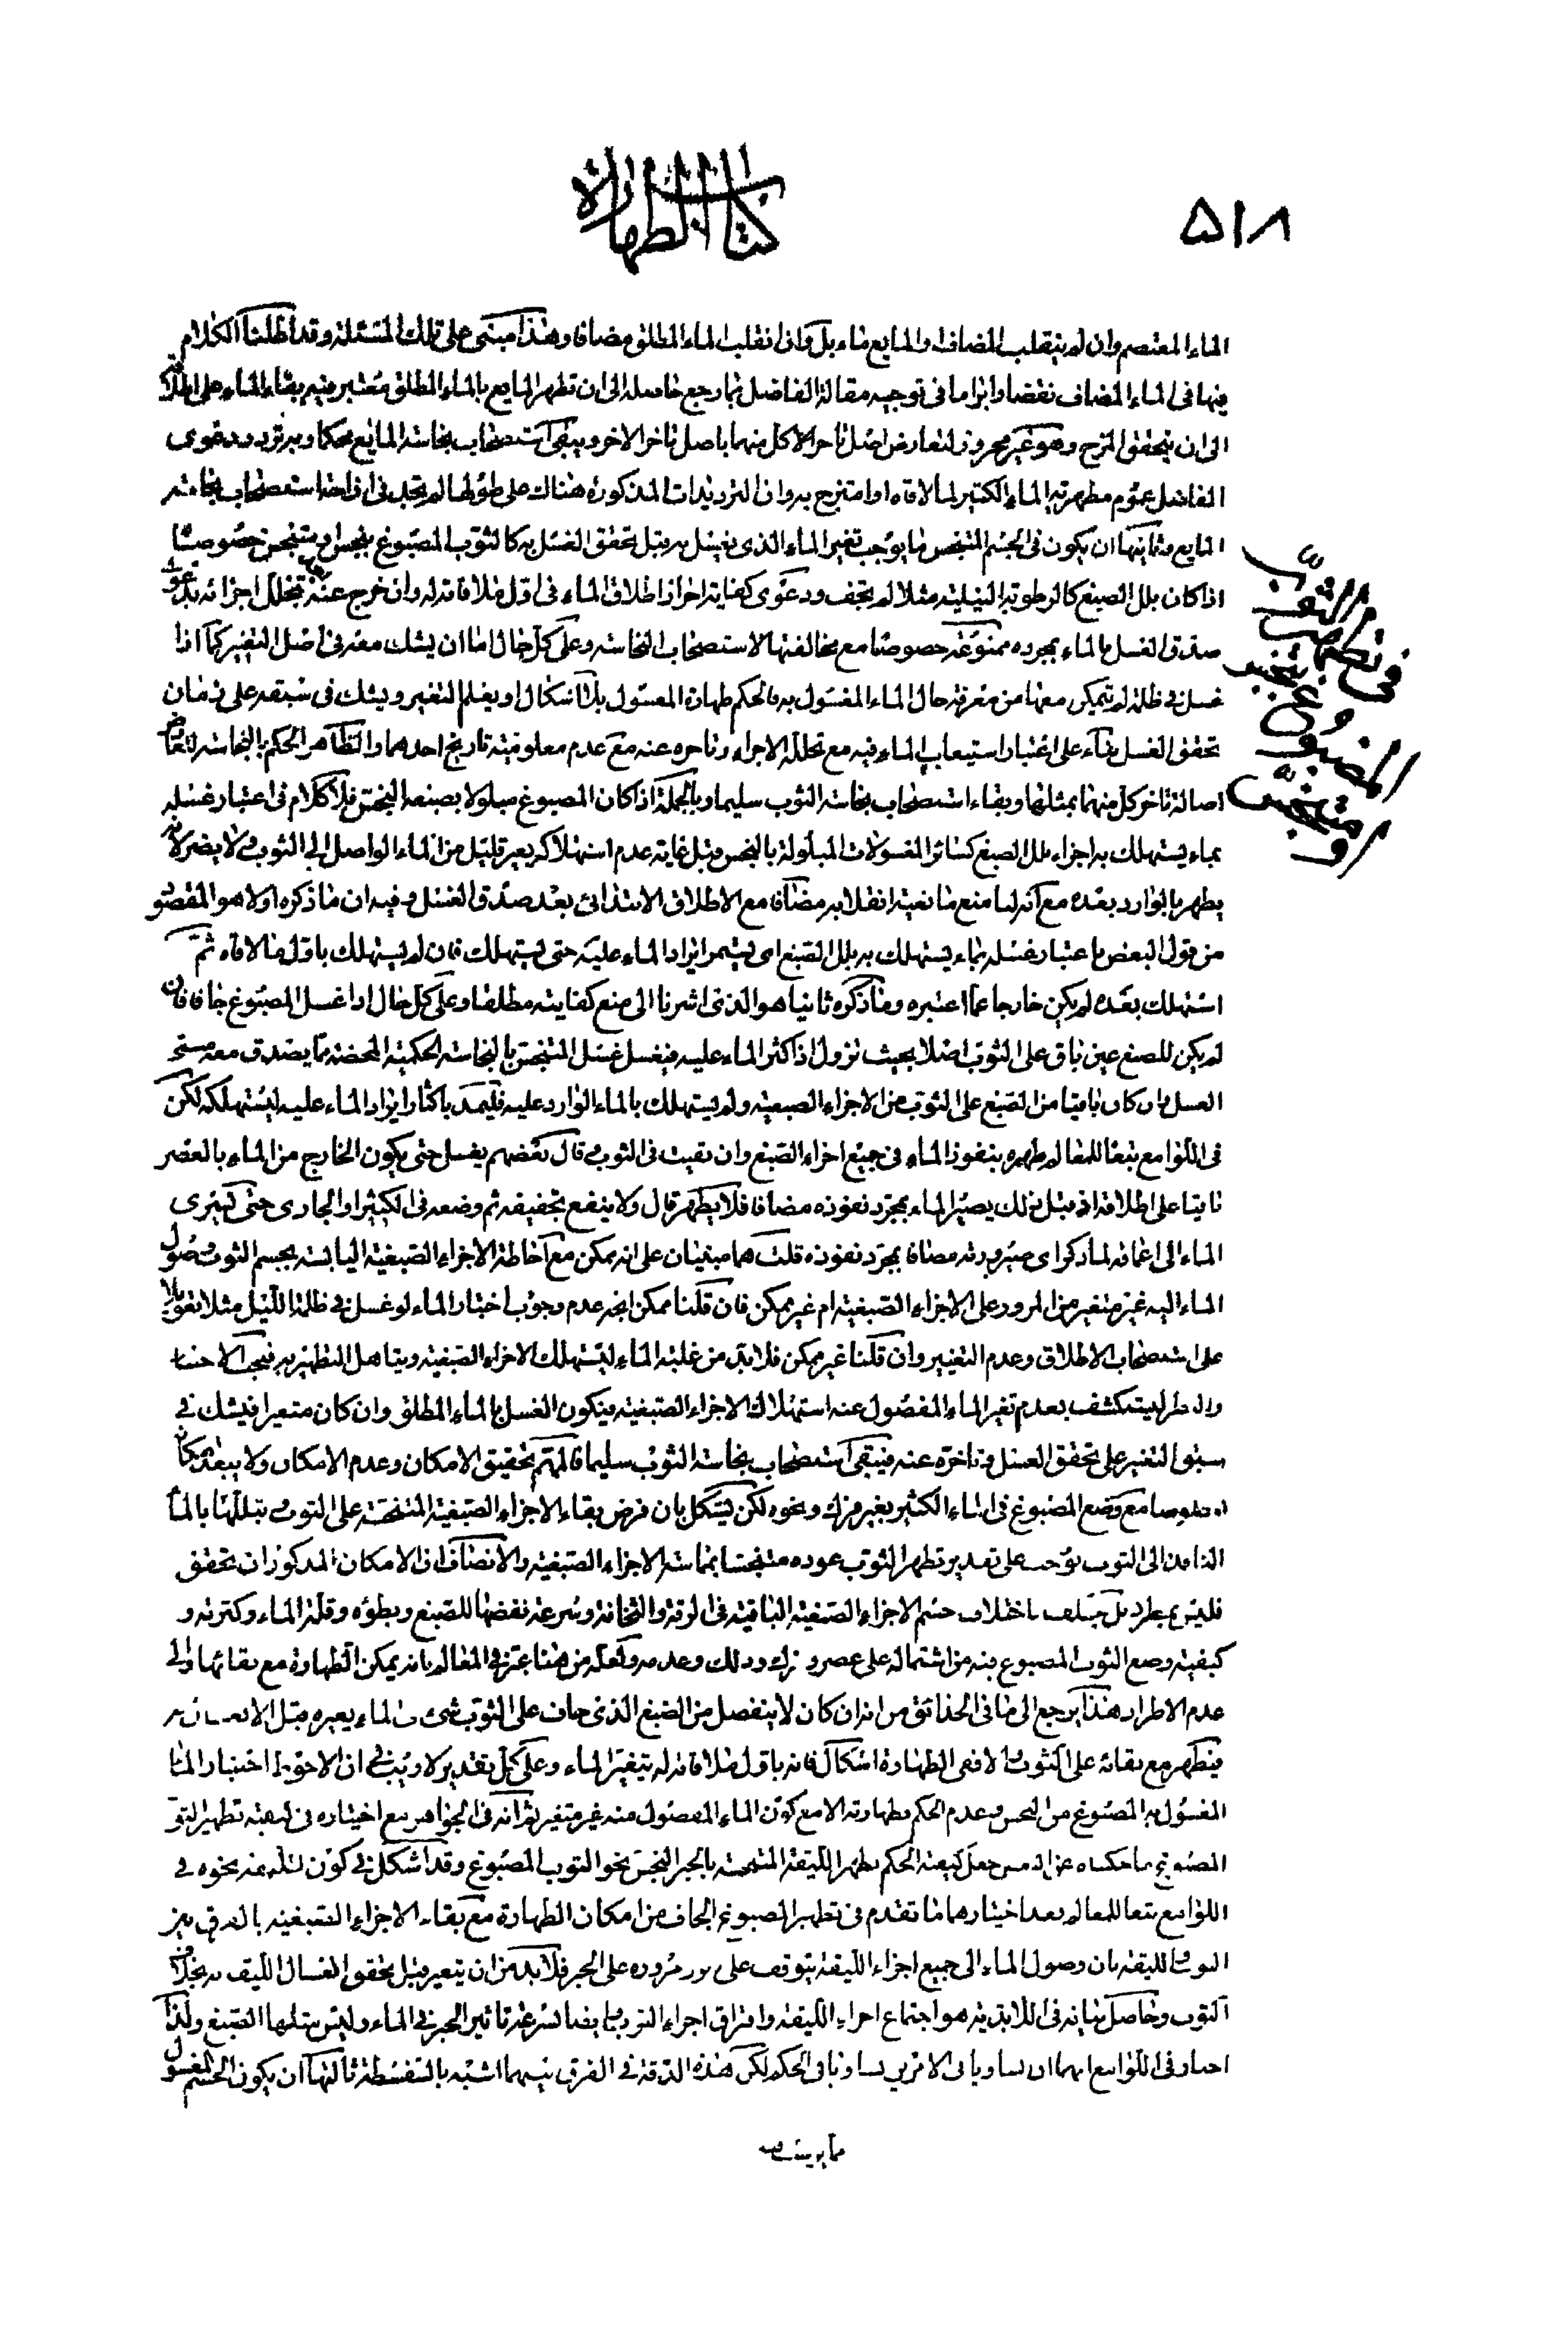 ٥١٨
كتاب الطهارة
الماء المعتصم وان لم ينقلب المضاف والمايع ماء بل وان انقلب الماء المطلق مضافا وهذا مبنى على تلك المسئلة وقد اطلنا الكلام
فيها فى الماء المضاف نقضا وابراما فى توجيه مقالة الفاضل بما رجع حاصله الى ان تطهر المايع بالماء المطلق معتبر فيه بقاء الماء على اطلاقه
الى ان يتحقق المزج وهو غير محرز لتعارض اصل تاخر كل منهما باصل تاخر الاخر ويبقى استصحاب نجاسة المايع محكما وبه ترد دعوى
الفاضل عموم مطهرية الماء الكثير لما لاقاه او امتزج به وان الترديدات المذكورة هناك على طولها لم يجد فى استصحاب نجاسة
المايع وثانيها ان يكون فى الجسم المتنجس ما يوجب تغير الماء الذى يغسل به قبل تحقق الغسل به كالثوب المصبوغ بنجس او متنجس خصوصا
فى تطهير الثوب
المصبوغ بنجس
او متنجس
اذا كان بلل الصبغ كالرطوبة النيلية مثلا لم يجف ودعوى كفاية احراز اطلاق الماء فى اول ملاقاته له وان خرج عنه بتخلل اجزائه بدعوى
صدق الغسل بالماء بمجرده ممنوعة خصوصا مع مخالفتها لاستصحاب النجاسة وعلى كل حال اما ان يشك معه فى اصل التغير كما اذا
غسل فى ظلمة لم يتمكن معها من معرفة حال الماء المغسول به فالحكم طهارة المغسول بلا اشكال او يعلم التغير ويشك فى سبقه على زمان
تحقق الغسل بناء على اعتبار استيعاب الماء فيه مع تخلله الاجزاء وتاخره عنه مع عدم معلومية تاريخ احدهما والظاهر الحكم بالنجاسة لتعارض
اصالة تاخر كل منهما بمثلها وبقاء استصحاب نجاسة الثوب سليما وبالجملة اذا كان المصبوغ مبلولا بصبغه النجس فلا كلام فى اعتبار غسله
بماء يستهلك به اجزاء بلل الصبغ كسائر المغسولات المبلولة بالنجس وقبل غايته عدم استهلاكه بغير قليل من الماء الواصل الى الثوب ولا يضر لانه
يطهر بالوارد بعده مع انه لما منع مانعية انقلابه مضافا مع الاطلاق الابتدائى بعد صدق الغسل وفيه ان ما ذكره اولا هو المقصود
من قول البعض باعتبار غسله بماء يستهلك به بلل الصبغ اى يستمر ايراد الماء عليه حتى يستهلك فان لم يستهلك باول ما لاقاه ثم
استهلك بعده لم يكن خارجا عما اعتبره وما ذكره ثانيا هو الذى اشرنا الى منع كفايته مطلقا وعلى كل حال اذا غسل المصبوغ جافا فان
لم يكن للصبغ عين باق على الثوب اصلا بحيث نزول اذا كثر الماء عليه فيغسل غسل المتنجس بالنجاسة الحكمية المحضة مما يصدق معه مسمى
الغسل وان كان باقيا من الصبغ على الثوب من الاجزاء الصبغية ولم يستهلك بالماء الوارد عليه باكثار ايراد الماء عليه ليستهلكه لكن
فى اللوامع تبعا للمعالم طهره بنفوذ الماء فى جميع اجزاء الصبغ وان بقيت فى الثوب قال بعضهم يغسل حتى يكون الخارج من الماء بالعصر
باقيا على اطلاقه اذ قبل ذلك يصير الماء بمجرد نفوذه مضافا فلا يطهر قال ولا ينفع تجفيفه ثم وضعه فى الكثير او الجارى حتى يسرى
الماء الى اعماقه لما ذكر اى صيرورته مضافا بمجرد نفوذه قلت هما مبنيان على انه يمكن مع احاطة الاجزاء الصبغية اليابسة بجسم الثوب وصول
الماء اليه غير متغير من المرور على الاجزاء الصبغية ام غير ممكن فان قلنا ممكن اتجه عدم وجوب اختبار الماء لو غسل فى ظلمة الليل مثلا تعويلا
على استصحاب الاطلاق وعدم التغيير وان قلنا غير ممكن فلا بد من غلبة الماء ليستهلك الاجزاء الصبغية ويتاهل التطهير به فيجب الاحتياط
ليستكشف بعدم تغير الماء المفصول عنه استهلاك الاجزاء الصبغية فيكون الغسل بالماء المطلق وان كان متغيرا فيشك فى
سبق التغير على تحقق الغسل وتاخره عنه فيبقى استصحاب نجاسة الثوب سليما فالمهم تحقيق الامكان وعدم الامكان ولا يبعد امكانه
خصوصا مع وضع المصبوغ فى الماء الكثير بغير فرك ونحوه لكن يشكل بان فرض بقاء الاجزاء الصبغية المتنجسة على الثوب بتبللها بالماء
النافذ الى الثوب يوجب على تقدير تطهر الثوب عوده متنجسا بمماسة الاجزاء الصبغية والانصاف ان الامكان المذكور ان تحقق
فليس بمطرد بل يختلف باختلاف جسم الاجزاء الصبغية الباقية فى الرقة والثخانة وسرعة نفضها للصبغ وبطؤه وقلة الماء وكثرته و
كيفية وضع الثوب المصبوغ فيه من اشتماله على عصر و فرك ودلك وعدمه ولعله من هنا عبر فى المعالم بانه يمكن الطهارة مع بقائها والى
عدم الاطراد هذا يرجع الى ما فى الحدائق من انه ان كان لا ينفصل من الصبغ الذى جاف على الثوب شىء فى الماء يغيره قبل
فيطهر مع بقائه على الثوب والا ففى الطهارة اشكال فانه باول ملاقاته له يتغير الماء وعلى كل تقدير لا ريب فى ان الاحوط اختبار الماء
المغسول به المصبوغ من النجس وعدم الحكم بطهارته الا مع كون الماء المفصول منه غير متغير ثم انه فى الجواهر مع اختياره فى كيفية تطهير الثوب
المصبوغ ما حكيناه جعل كيفية الحكم بطهر الليقة المتنجسة بالحبر النجس نحو الثوب المصبوغ وقد اشكل فى كون نحوه فى
اللوامع تبعا للمعالم بعد اختيارهما ما تقدم فى تطهير المصبوغ الجاف من امكان الطهارة مع بقاء الاجزاء الصبغية بالفرق بين
الثوب والليقة بان وصول الماء الى جميع اجزاء الليقة يتوقف على مروره على الحبر فلا بد من ان يتغير قبل تحقق انغسال الليقة به بخلاف
الثوب وحاصل بيانه فى اللابدية هو اجتماع اجزاء الليقة وافتراق اجزاء الثوب وايضا لسرعة تاثير الحبر فى الماء وليس مثلها الصبغ ولذا
فى اللوامع انهما ان تساويا فى الامرين تساويا فى الحكم لكن هذه الدقة فى الفرق بينهما اشبه بالسفسطة ثالثها ان يكون الجسم المغسول